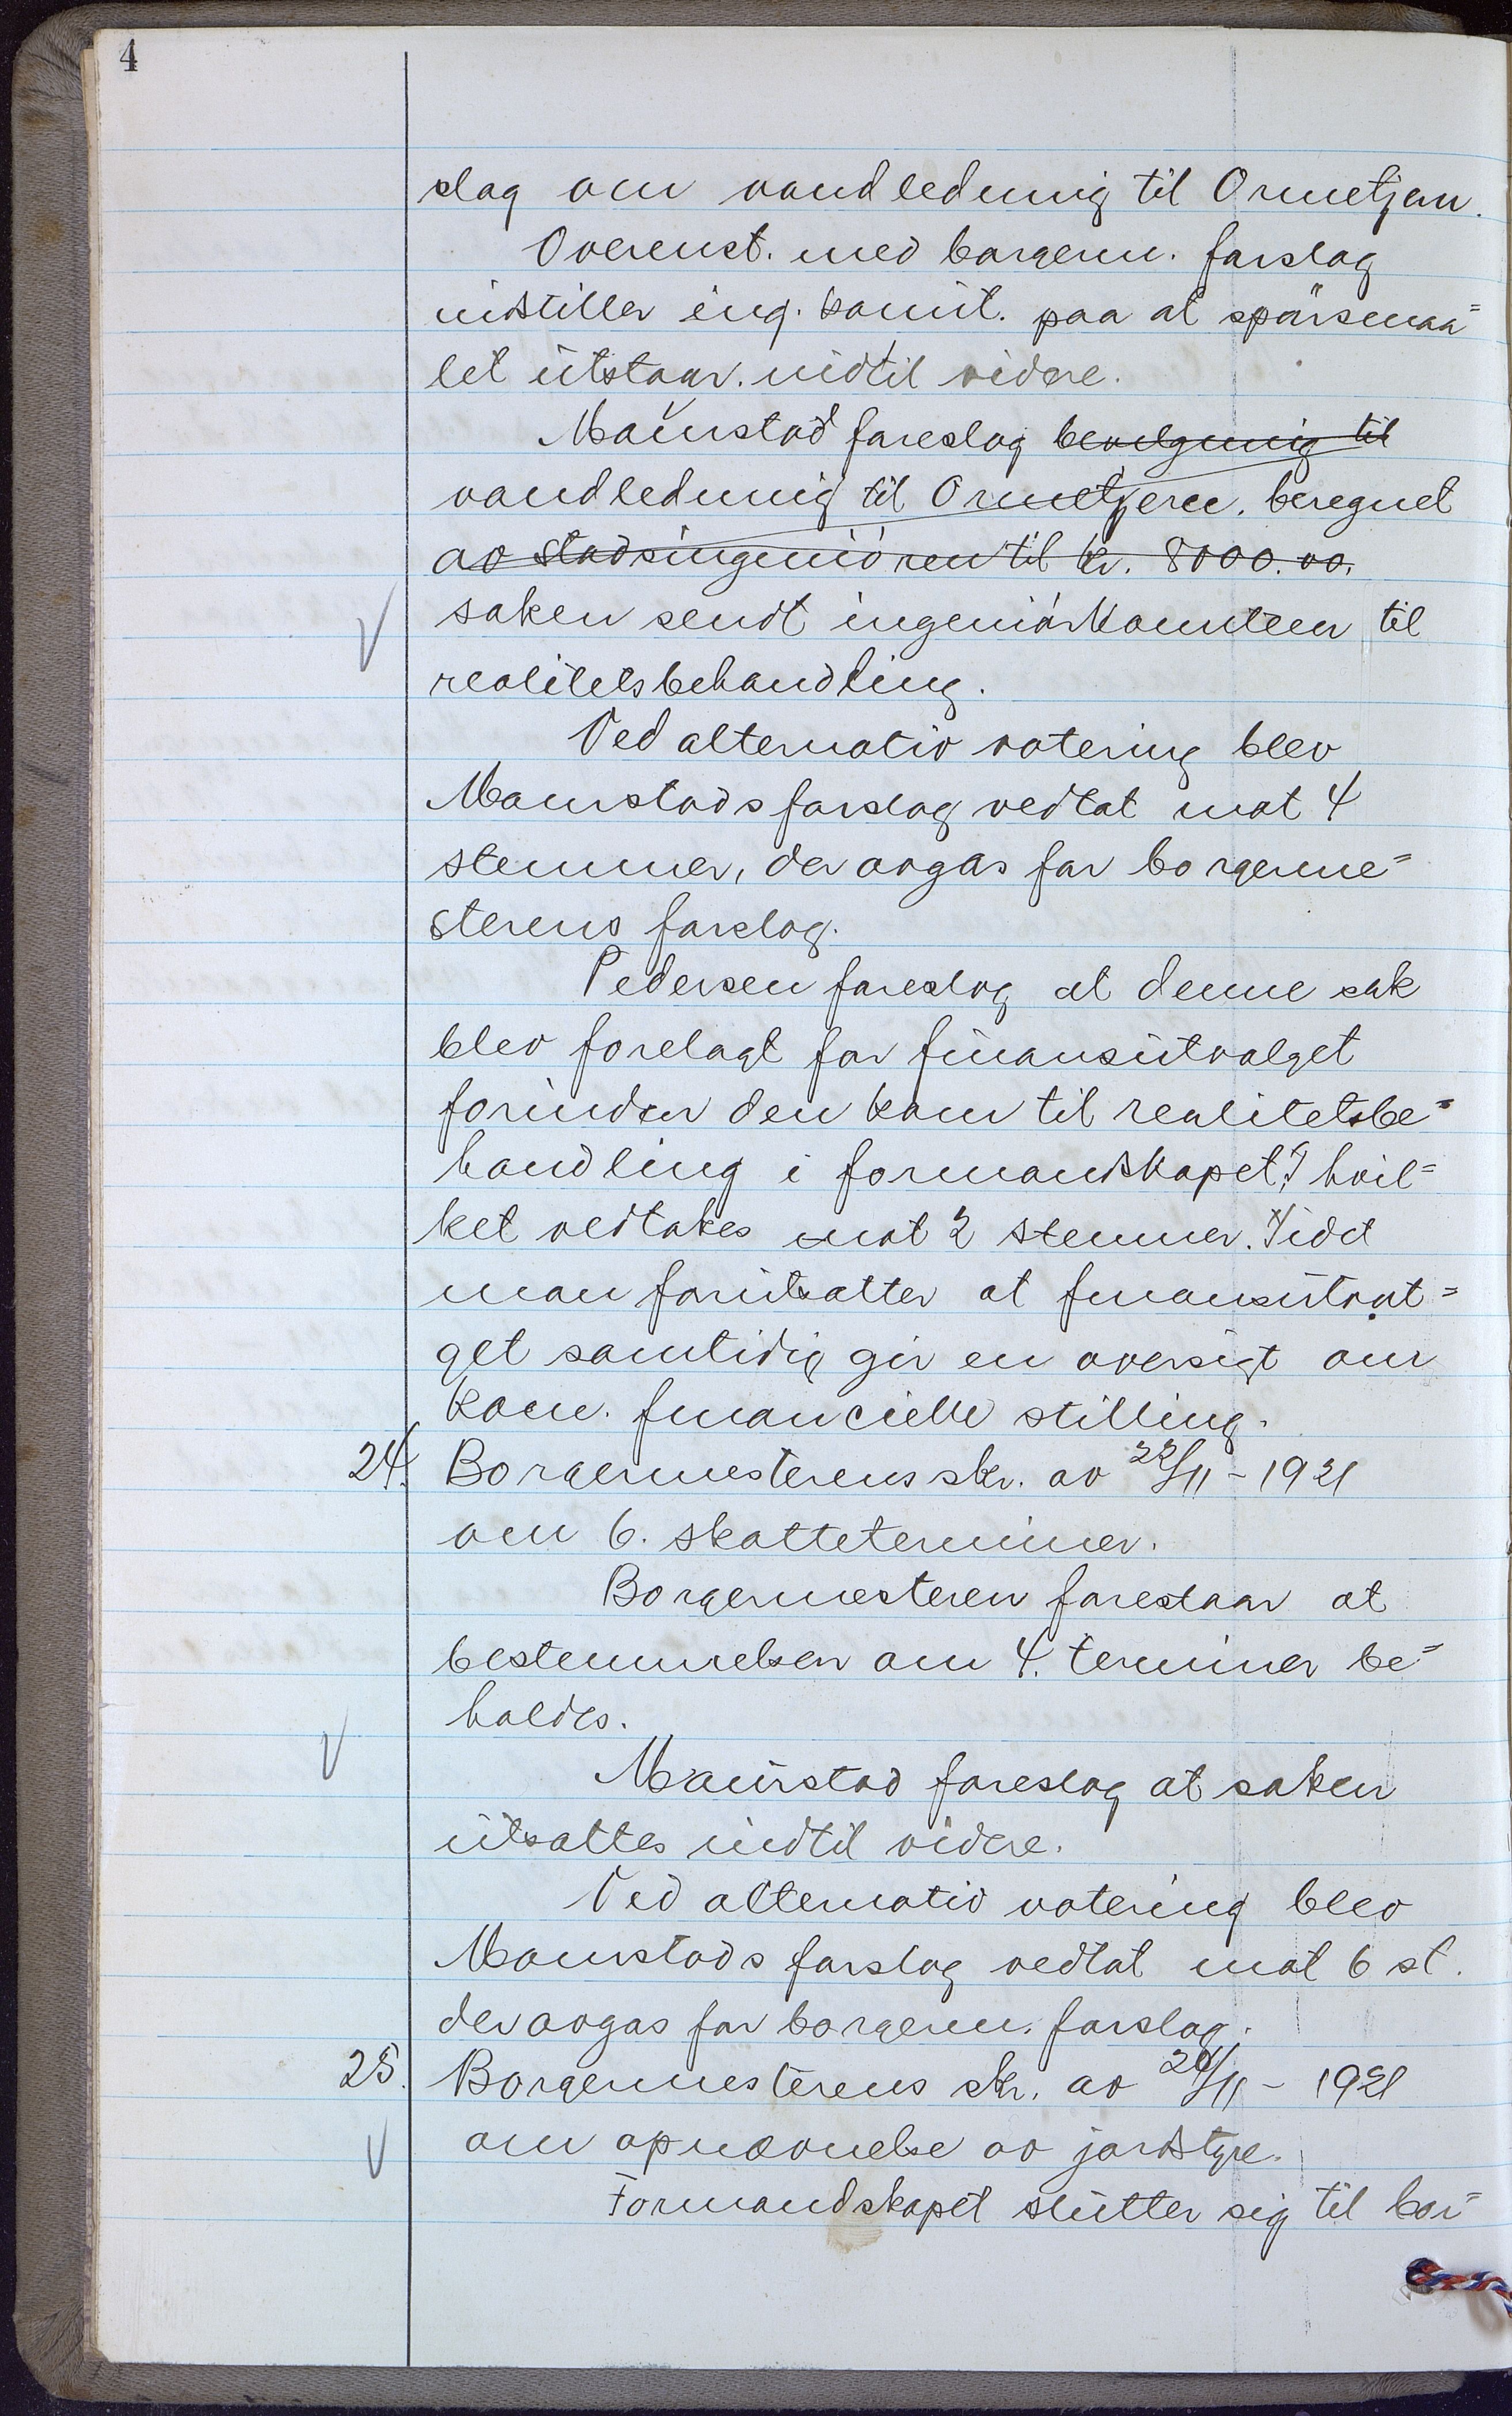 4
slag om vandledning til Ormetjern.
Overenst. med borgerm. forslag
indstiller ing. komit. paa at spörsmaa=
let utstaar indtil videre.
Maurstad foreslog bevilgning til
vandledning til Ormetjern, beregnet
av stadsingeniören til kr. 8000.00.
saken sendt ingeniörkomiteen til
realitetsbehandling.
Ved alternativ votering blev
Maurstads forslag vedtat mot 4
stemmer, der avgas for borgerme=
sterens forslag.
Pedersen foreslog at denne sak
blev forelagt for finansutvalget
forinden den kom til realitetsbe=
handling i formandskapet, hvil=
ket vedtakes mot 2 stemmer. Idet
man forutsatter at finansutval=
get samtidig gir en oversigt om
kom. financielle stilling.
24. Borgermesterens skr. av 22/11 - 1921
om 6. skatteterminer.
Borgermesteren foreslaar at
bestemmelsen om 4. terminer be=
holdes.
Maurstad foreslog at saken
utsattes indtil videre.
Ved alternativ votering blev
Maurstads forslag vedtat mot 6 st.
der avgas for borgerm. forslag.
25. Borgermesterens skr. av 24/11 - 1921
om opnævnelse av jordstyre.
Formandskapet slutter sig til bor=